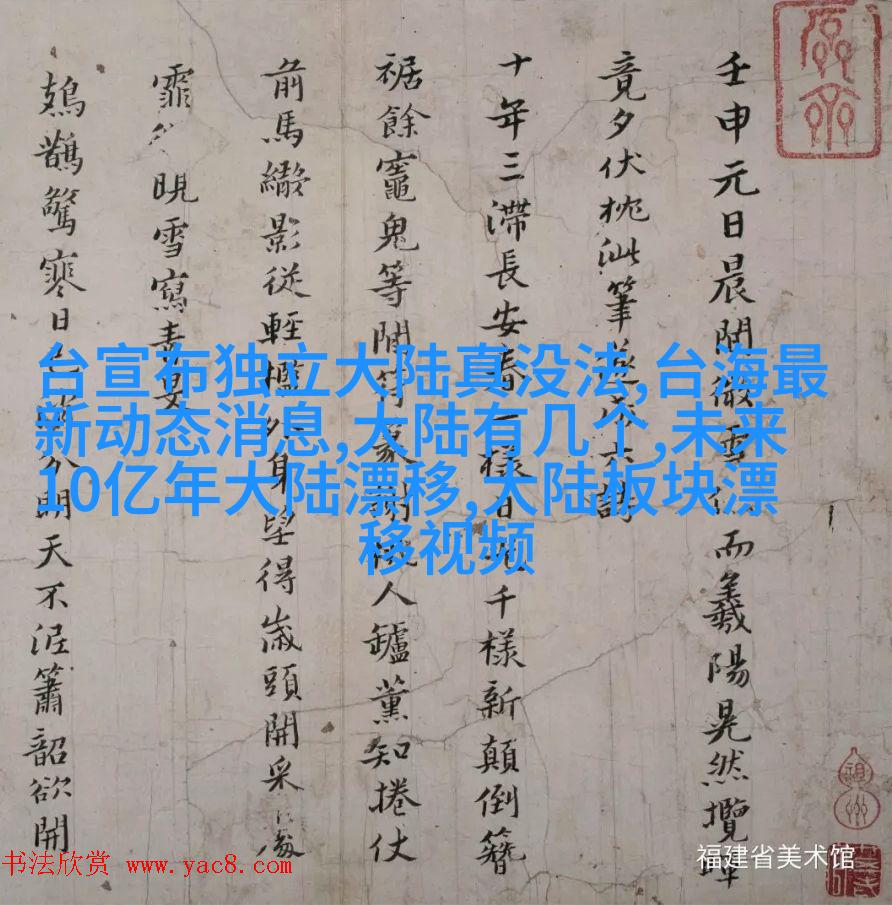 壬申元日晨開微雪而羲陽晃然攬
竟夕伏枕泚筆
十年三滯長安一樣千樣新顛倒簪
裾餘竈鬼等閒人鑪薰知捲仗
前馬繖影從輕身得歲頭開采
霏晛雪寫
鳷鵲驚寒日分明天不簫韶欲開
台宣布独立大陆真没法,台海最
新动态消息,大陆有几个,未来
10亿年大陆漂移,大陆板块漂
移视频
书法欣赏 www.yac8.com
福建省美术馆